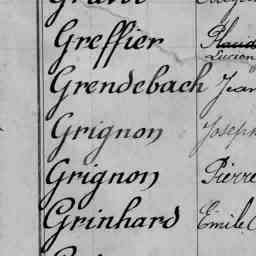 Greffier Placid
Lucien
Grendebach Jean
Grignon Joseph
Grignon Pierre
Grinhard Émile